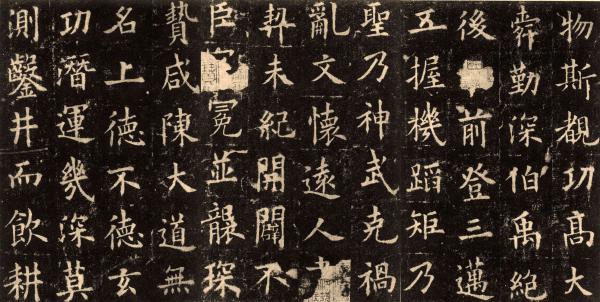 物斯覩功高大
舜勤深伯禹絕
後前登三邁
五握機蹈矩乃
聖乃神武克禍
亂文懷遠人
契未紀開闢不
臣冠冕並襲琛
贄咸陳大道無
名上德不德玄
功潛運幾深莫
測鑿井而飲耕